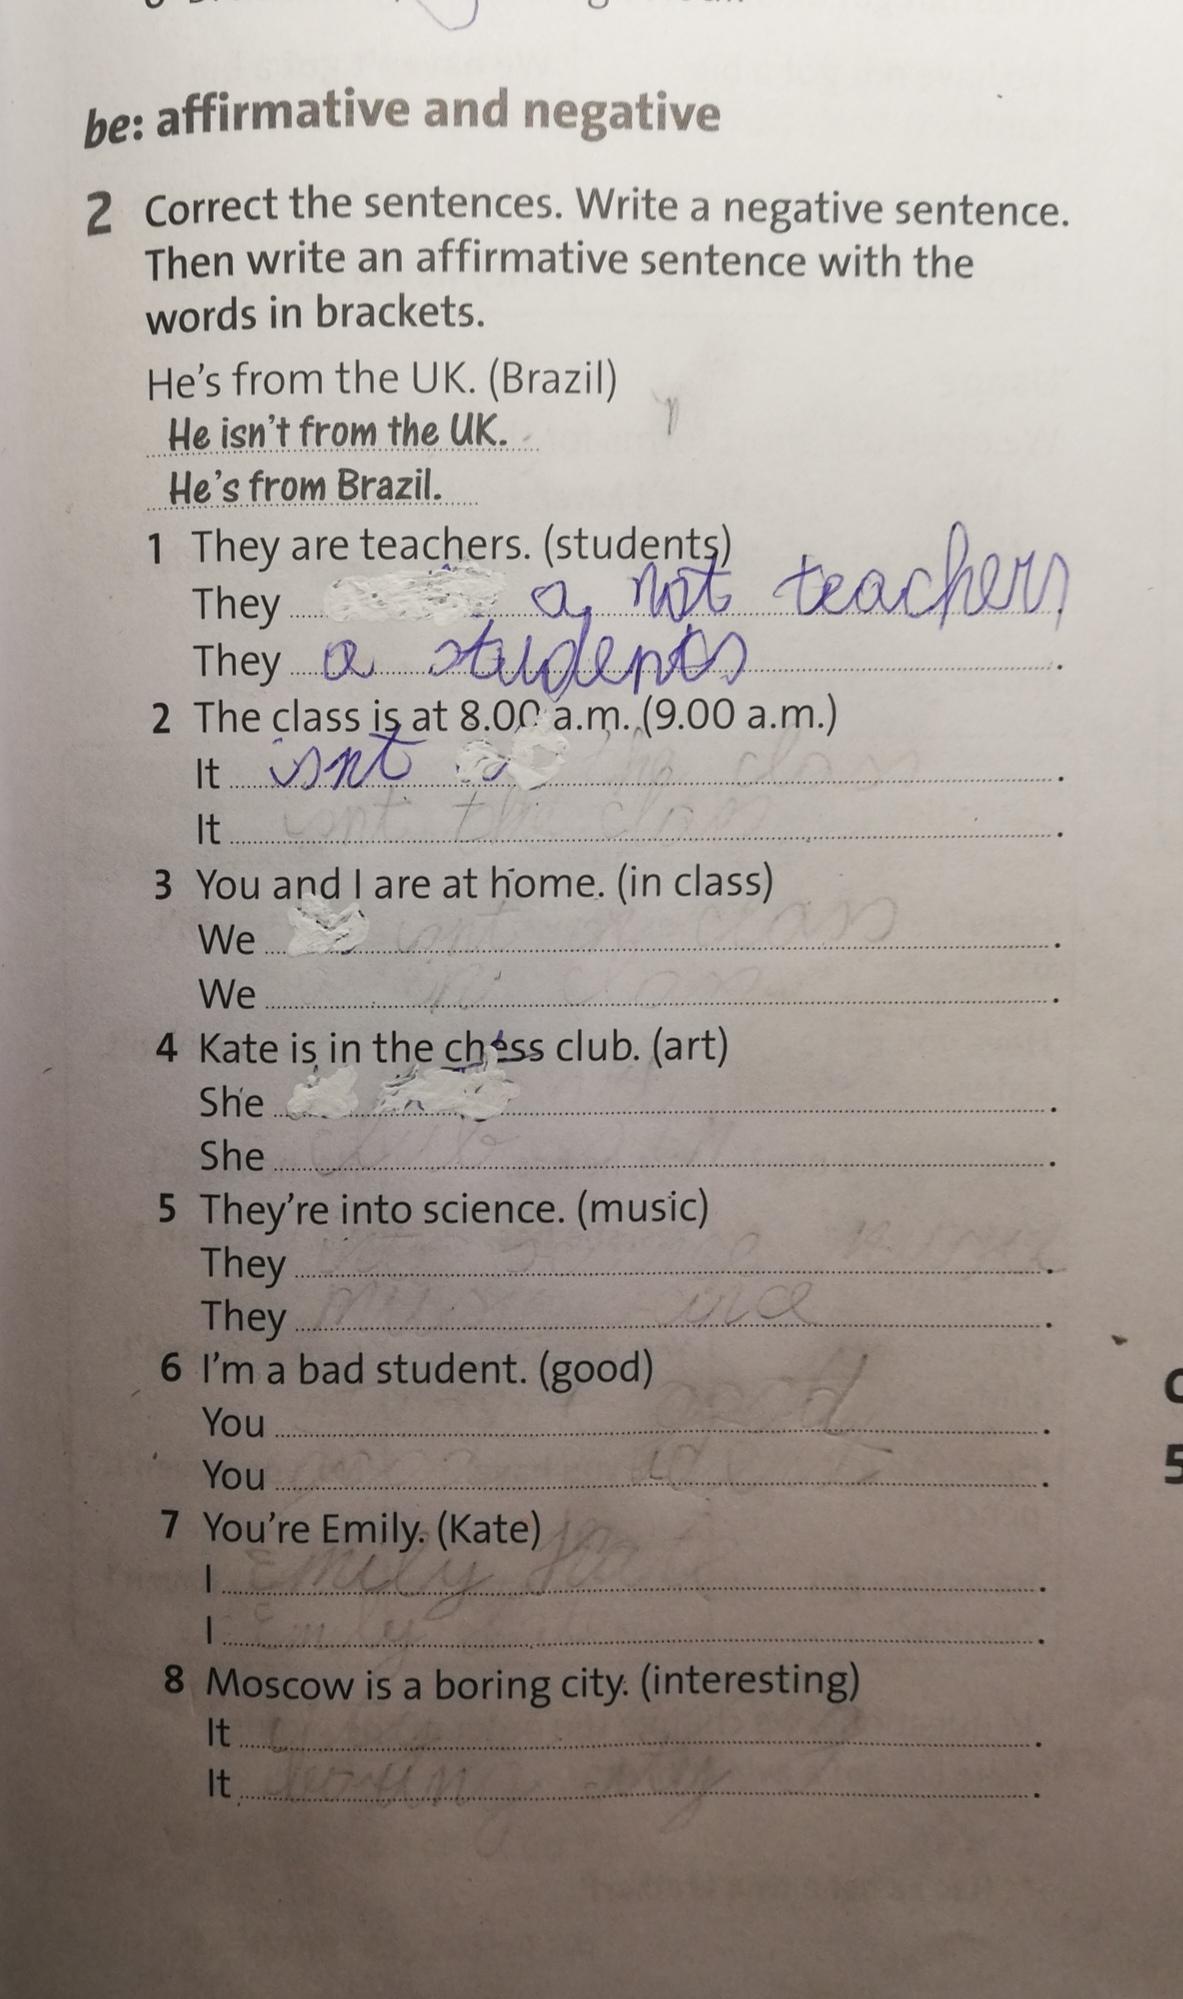 be: affirmative and negative
2 Correct the sentences. Write a negative sentence.
Then write an affirmative sentence with the
words in brackets.
He's from the UK. (Brazil)
He isn't from the UK.
He's from Brazil.
1 They are teachers. (students)
They a not teachers
They a students.
2 The class is at 8.00 a.m. (9.00 a.m.)
It isnt.
It.
3 You and I are at home. (in class)
We.
We.
4 Kate is in the chess club. (art)
She.
She.
5 They're into science. (music)
They.
They.
6 I'm a bad student. (good)
You.
You.
7 You're Emily. (Kate)
I.
I.
8 Moscow is a boring city. (interesting)
It.
It.
C
5